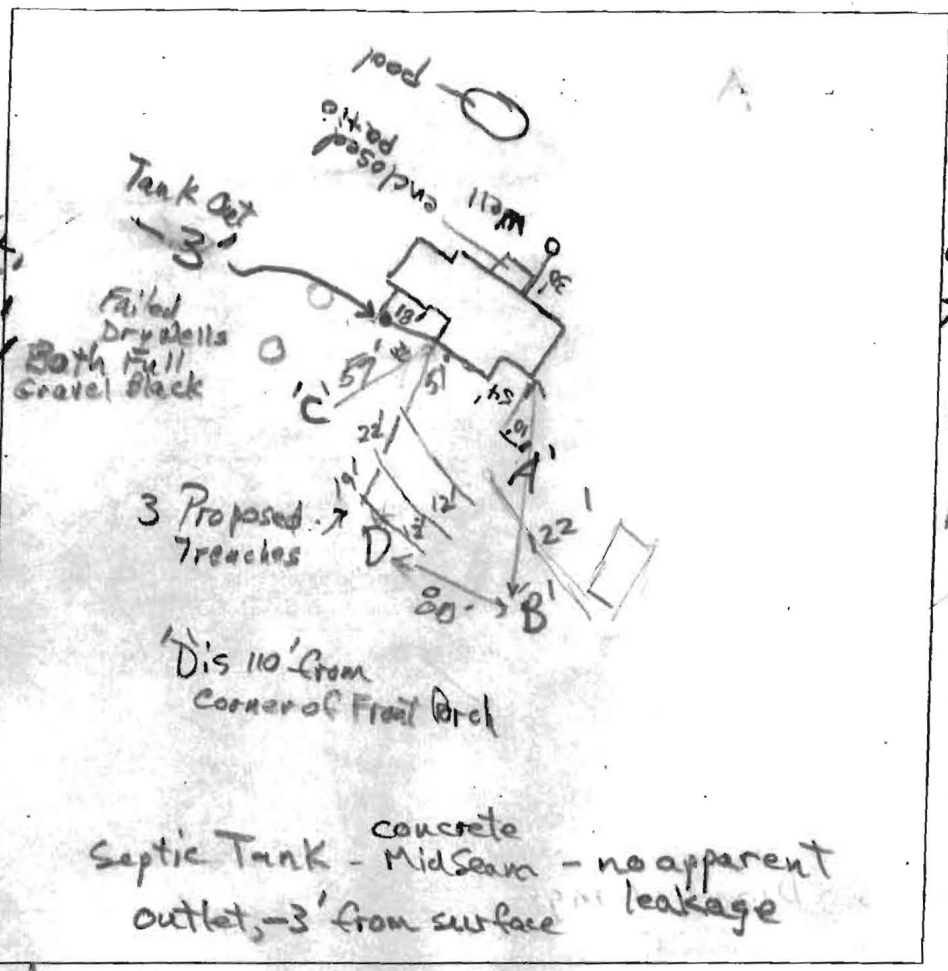 pool
enclosed
patio
Well
30'
Tank Out
-3'
Failed
Dry Wells
Both Full
Gravel Black
18'
57'
'C'
51'
54'
10'
'A'
22'
19'
12'
3 Proposed
Trenches
D
80'
'B'
'D' is 110' from
Corner of Front Porch
Septic Tank - concrete
MidSeam - no apparent
leakage
outlet, -3' from surface